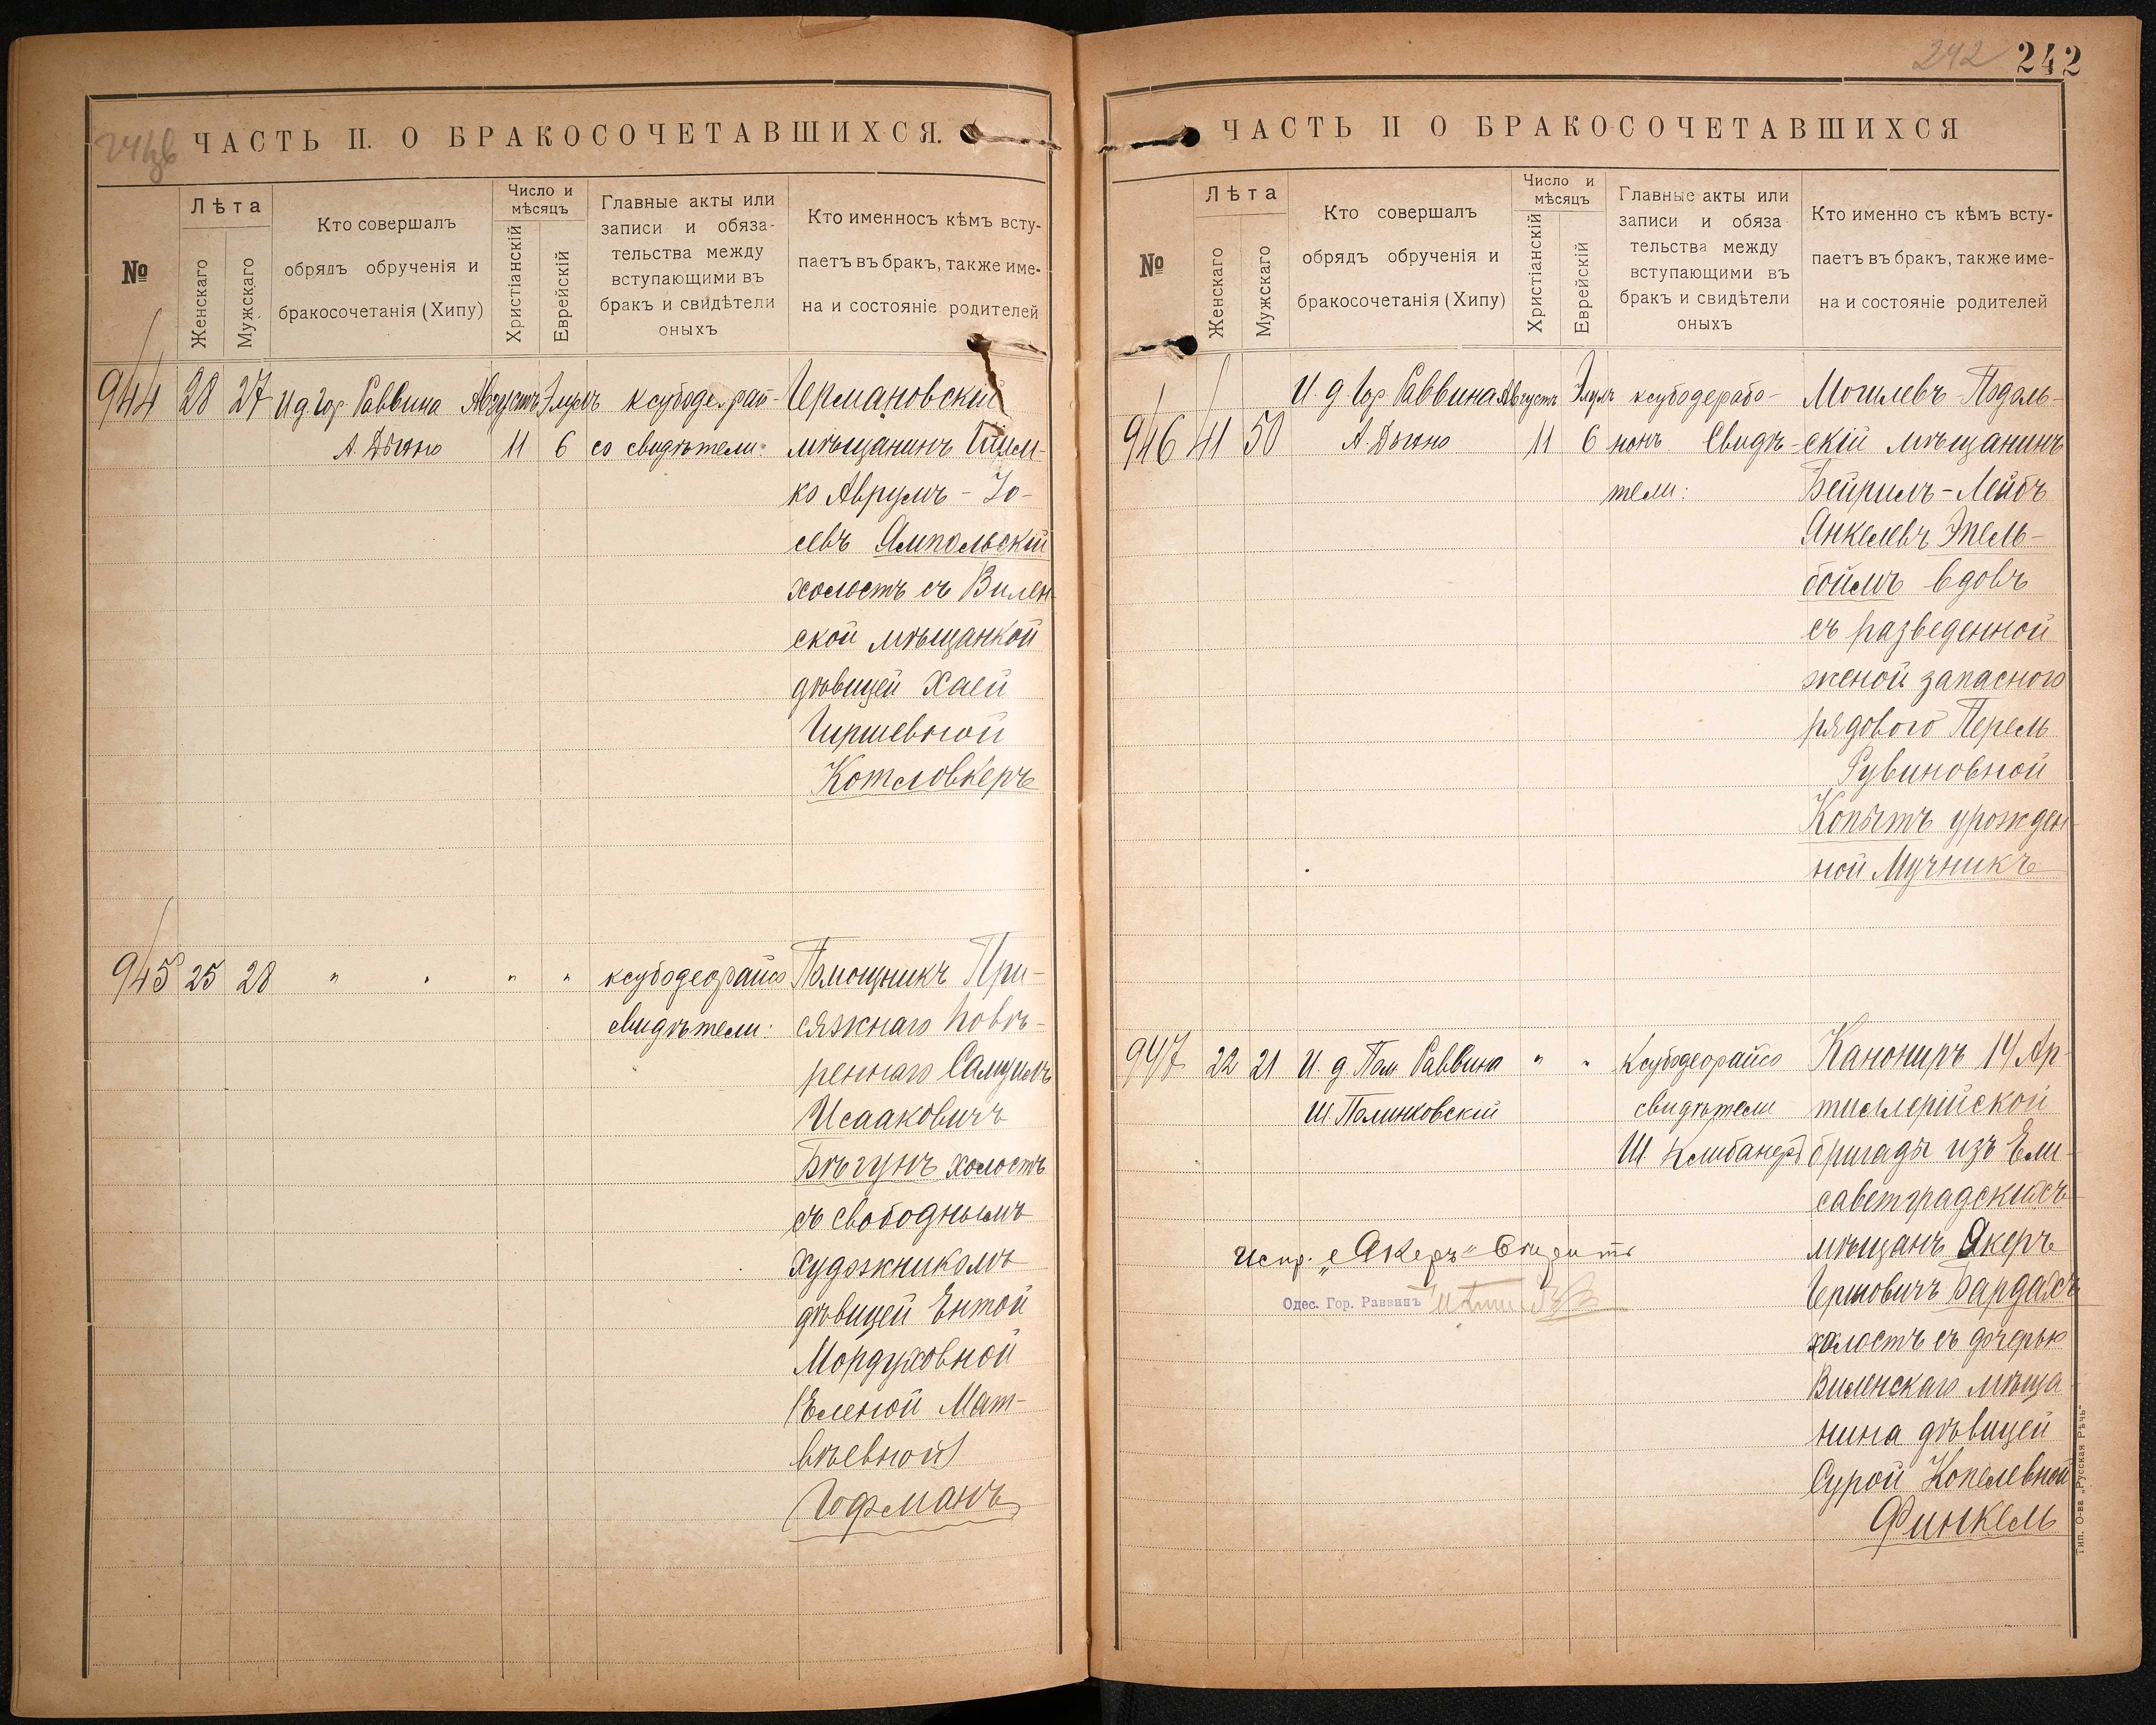 241 об
ЧАСТЬ II. О БРАКОСОЧЕТАВШИХСЯ.
№
Лѣта
Женскаго
Мужскаго
Кто совершалъ
обрядъ обрученія и
бракосочетанія (Хипу)
Число и
мѣсяцъ
Христіанскій
Еврейскій
Главные акты или
записи и обяза-
тельства между
вступающими въ
бракъ и свидѣтели
оныхъ
Кто именносъ кѣмъ всту-
паетъ въ бракъ, также име-
на и состояніе родителей
944 28 27 И д Гор. Раввина Августъ Элулъ ксубодеерай-
А. Дыхно 11 6 со свидѣтели:
Германовскій
мѣщанинъ Шлем-
ко Аврумъ - Іо-
севъ Ямпольскій
холостъ съ Вилен
ской мѣщанкой
дѣвицей Хаей
Гиршевной
Котловкеръ
945 25 28 " " " " ксубодеорайсо
свидѣтели:
Помощникъ При-
сяжнаго Повѣ-
реннаго Самуилъ
Исааковичъ
Бѣгунъ холостъ
съ свободнымъ
художникомъ
дѣвицей Ентой
Мордуховной
(Еленой Мат-
вѣевной)
Гофманъ
242 242
ЧАСТЬ II О БРАКОСОЧЕТАВШИХСЯ
№
Лѣта
Женскаго
Мужскаго
Кто совершалъ
обрядъ обрученія и
бракосочетанія (Хипу)
Число и
мѣсяцъ
Христіанскій
Еврейскій
Главные акты или
записи и обяза
тельства между
вступающими въ
бракъ и свидѣтели
оныхъ
Кто именно съ кѣмъ всту-
паетъ въ бракъ, также име-
на и состояніе родителей
946 41 50 И д Гор. Раввина Августъ Элулъ ксубодерабо-
А. Дыхно 11 6 нонъ Свидѣ-
тели:
Могилевъ-Подоль-
скій мѣщанинъ
Бейрилъ-Лейбъ
Янкелевъ Эпель-
боймъ вдовъ
съ разведенной
женой запасного
рядового Перель
Рувиновной
Копытъ урожден
ной Мучникъ
947 22 21 И. д. Пом Раввина " " Ксубодеорайсо
Ш. Полинковскій свидѣтели
Ш Клибанеръ
Канониръ 14 Ар-
тиллерійской
бригады изъ Ели-
саветградскихъ
мѣщанъ Якеръ
Гершовичъ Бардахъ
холостъ съ дочерью
Виленскаго мѣща
нина дѣвицей
Сурой Копелевной
Финкель
Испр. „Якеръ“
Одес. Гор. Раввинъ
Тип. О-ва „Русская Рѣчь“